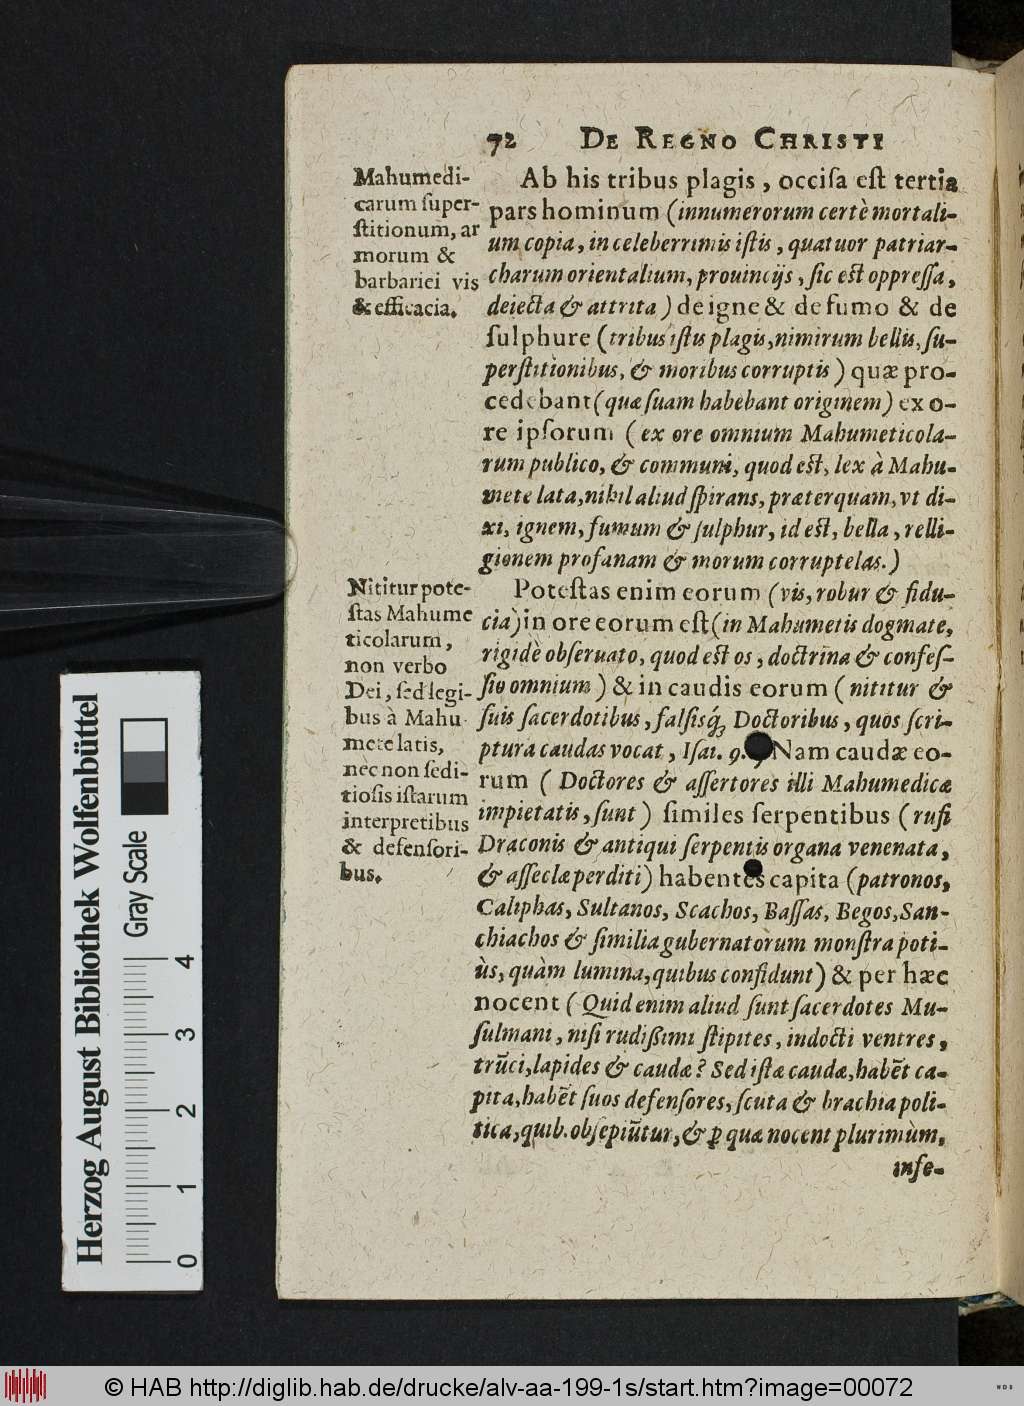 72 DE REGNO CHRISTI
Mahumedi-
carum ſuper-
ſtitionum, ar
morum &
barbariei vis
& efficacia.
Ab his tribus plagis, occiſa eſt tertia
pars hominum (innumerorum certè mortali-
um copia, in celeberrimis iſtis, quatuor patriar-
charum orientalium, prouincijs, ſic eſt oppreſſa,
deiecta & attrita) de igne & de fumo & de
ſulphure (tribus iſtis plagis, nimirum bellis, ſu-
perſtitionibus, & moribus corruptis) quæ pro-
cedebant (quæ ſuam habebant originem) ex o-
re ipſorum (ex ore omnium Mahumeticola-
rum publico, & communi, quod eſt, lex à Mahu-
mete lata, nihil aliud ſpirans, præterquam, vt di-
xi, ignem, fumum & ſulphur, id eſt, bella, relli-
gionem profanam & morum corruptelas.)
Nititur pote-
ſtas Mahume
ticolarum,
non verbo
Dei, ſed legi-
bus à Mahu
mete latis,
nec non ſedi-
tioſis iſtarum
interpretibus
& defenſori-
bus.
Poteſtas enim eorum (vis, robur & fidu-
cia) in ore eorum eſt (in Mahumetis dogmate,
rigidè obſeruato, quod eſt os, doctrina & confeſ-
ſio omnium) & in caudis eorum (nititur &
ſuis ſacerdotibus, falſisq́ꝫ Doctoribus, quos ſcri-
ptura caudas vocat, Iſai. 9. Nam caudæ eo-
rum (Doctores & aſſertores illi Mahumedicæ
impietatis, ſunt) ſimiles ſerpentibus (rufi
Draconis & antiqui ſerpentis organa venenata,
& aſſeclæ perditi) habentes capita (patronos,
Caliphas, Sultanos, Scachos, Baſſas, Begos, San-
chiachos & ſimilia gubernatorum monſtra poti-
ùs, quàm lumina, quibus confidunt) & per hæc
nocent (Quid enim aliud ſunt ſacerdotes Mu-
ſulmani, niſi rudiſſimi ſtipites, indocti ventres,
trūci, lapides & caudæ? Sed iſtæ caudæ, habēt ca-
pita, habēt ſuos defenſores, ſcuta & brachia poli-
tica, quib. obſepiūtur, & ꝑ quæ nocent plurimùm,
inſe-
Herzog August Bibliothek Wolfenbüttel
Gray Scale
0 1 2 3 4
© HAB http://diglib.hab.de/drucke/alv-aa-199-1s/start.htm?image=00072